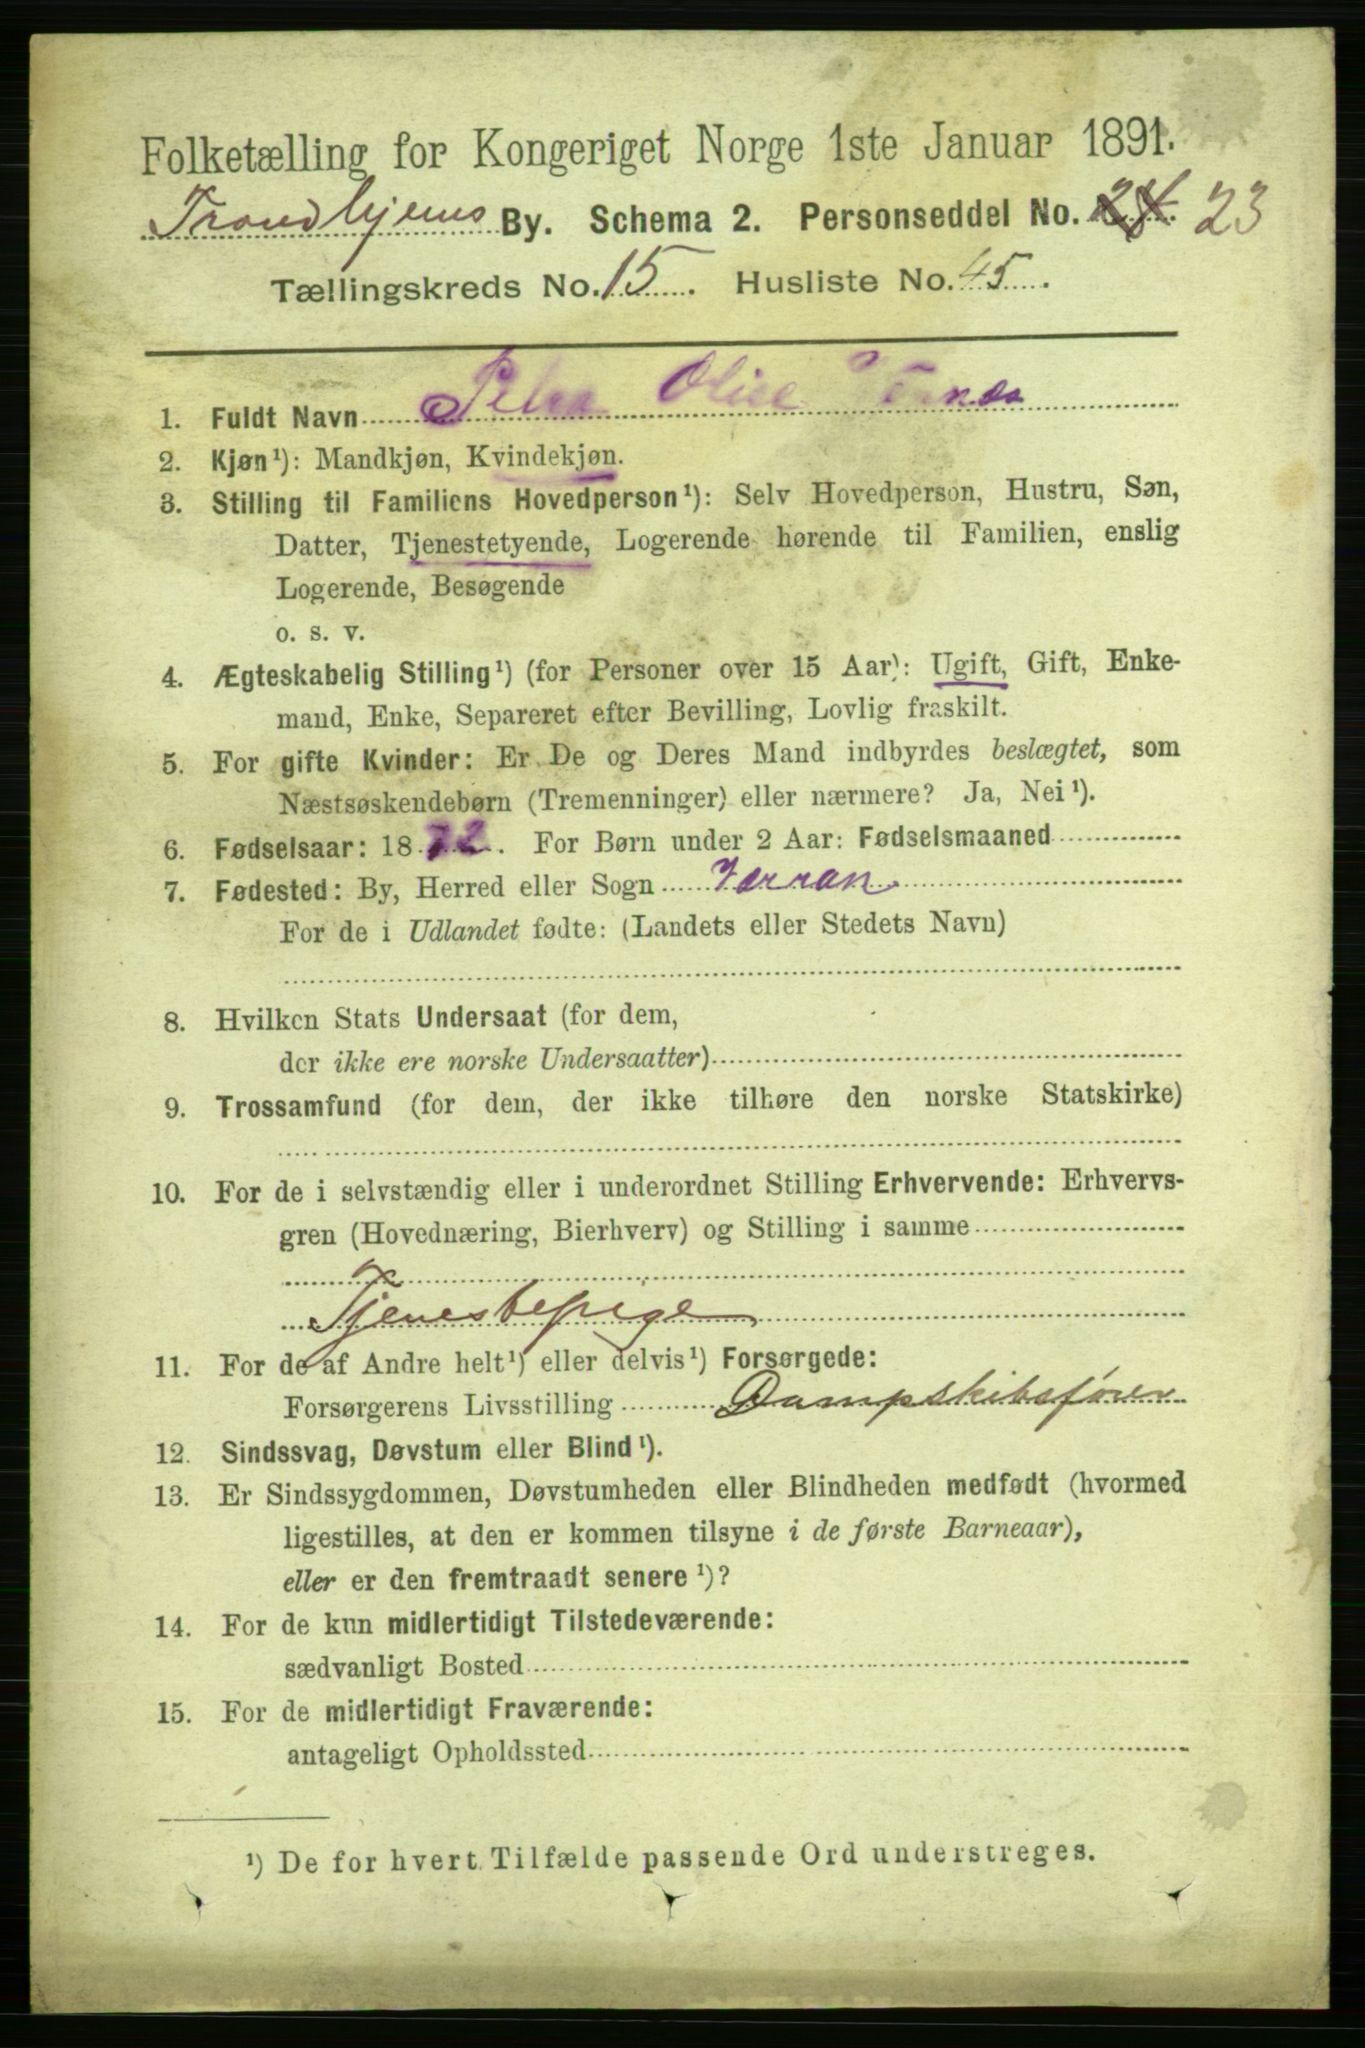 Folketælling for Kongeriget Norge 1ste Januar 1891.
Trondhjems By. Schema 2. Personseddel No. 24 23
Tællingskreds No. 15. Husliste No. 45.
1. Fuldt Navn Petra Oline
2. Kjøn¹): Mandkjøn, Kvindekjøn.
3. Stilling til Familiens Hovedperson¹): Selv Hovedperson, Hustru, Søn,
Datter, Tjenestetyende, Logerende hørende til Familien, enslig
Logerende, Besøgende
o. s. v.
4. Ægteskabelig Stilling¹) (for Personer over 15 Aar): Ugift, Gift, Enke-
mand, Enke, Separeret efter Bevilling, Lovlig fraskilt.
5. For gifte Kvinder: Er De og Deres Mand indbyrdes beslægtet, som
Næstsøskendebørn (Tremenninger) eller nærmere? Ja, Nei¹).
6. Fødselsaar: 1872. For Børn under 2 Aar: Fødselsmaaned
7. Fødested: By, Herred eller Sogn Værran
For de i Udlandet fødte: (Landets eller Stedets Navn)
8. Hvilken Stats Undersaat (for dem,
der ikke ere norske Undersaatter)
9. Trossamfund (for dem, der ikke tilhøre den norske Statskirke)
10. For de i selvstændig eller i underordnet Stilling Erhvervende: Erhvervs-
gren (Hovednæring, Bierhverv) og Stilling i samme
Tjenestepige
11. For de af Andre helt¹) eller delvis¹) Forsørgede:
Forsørgerens Livsstilling Dampskibsfører
12. Sindssvag, Døvstum eller Blind¹).
13. Er Sindssygdommen, Døvstumheden eller Blindheden medfødt (hvormed
ligestilles, at den er kommen tilsyne i de første Barneaar),
eller er den fremtraadt senere¹)?
14. For de kun midlertidigt Tilstedeværende:
sædvanligt Bosted
15. For de midlertidigt Fraværende:
antageligt Opholdssted
¹) De for hvert Tilfælde passende Ord understreges.